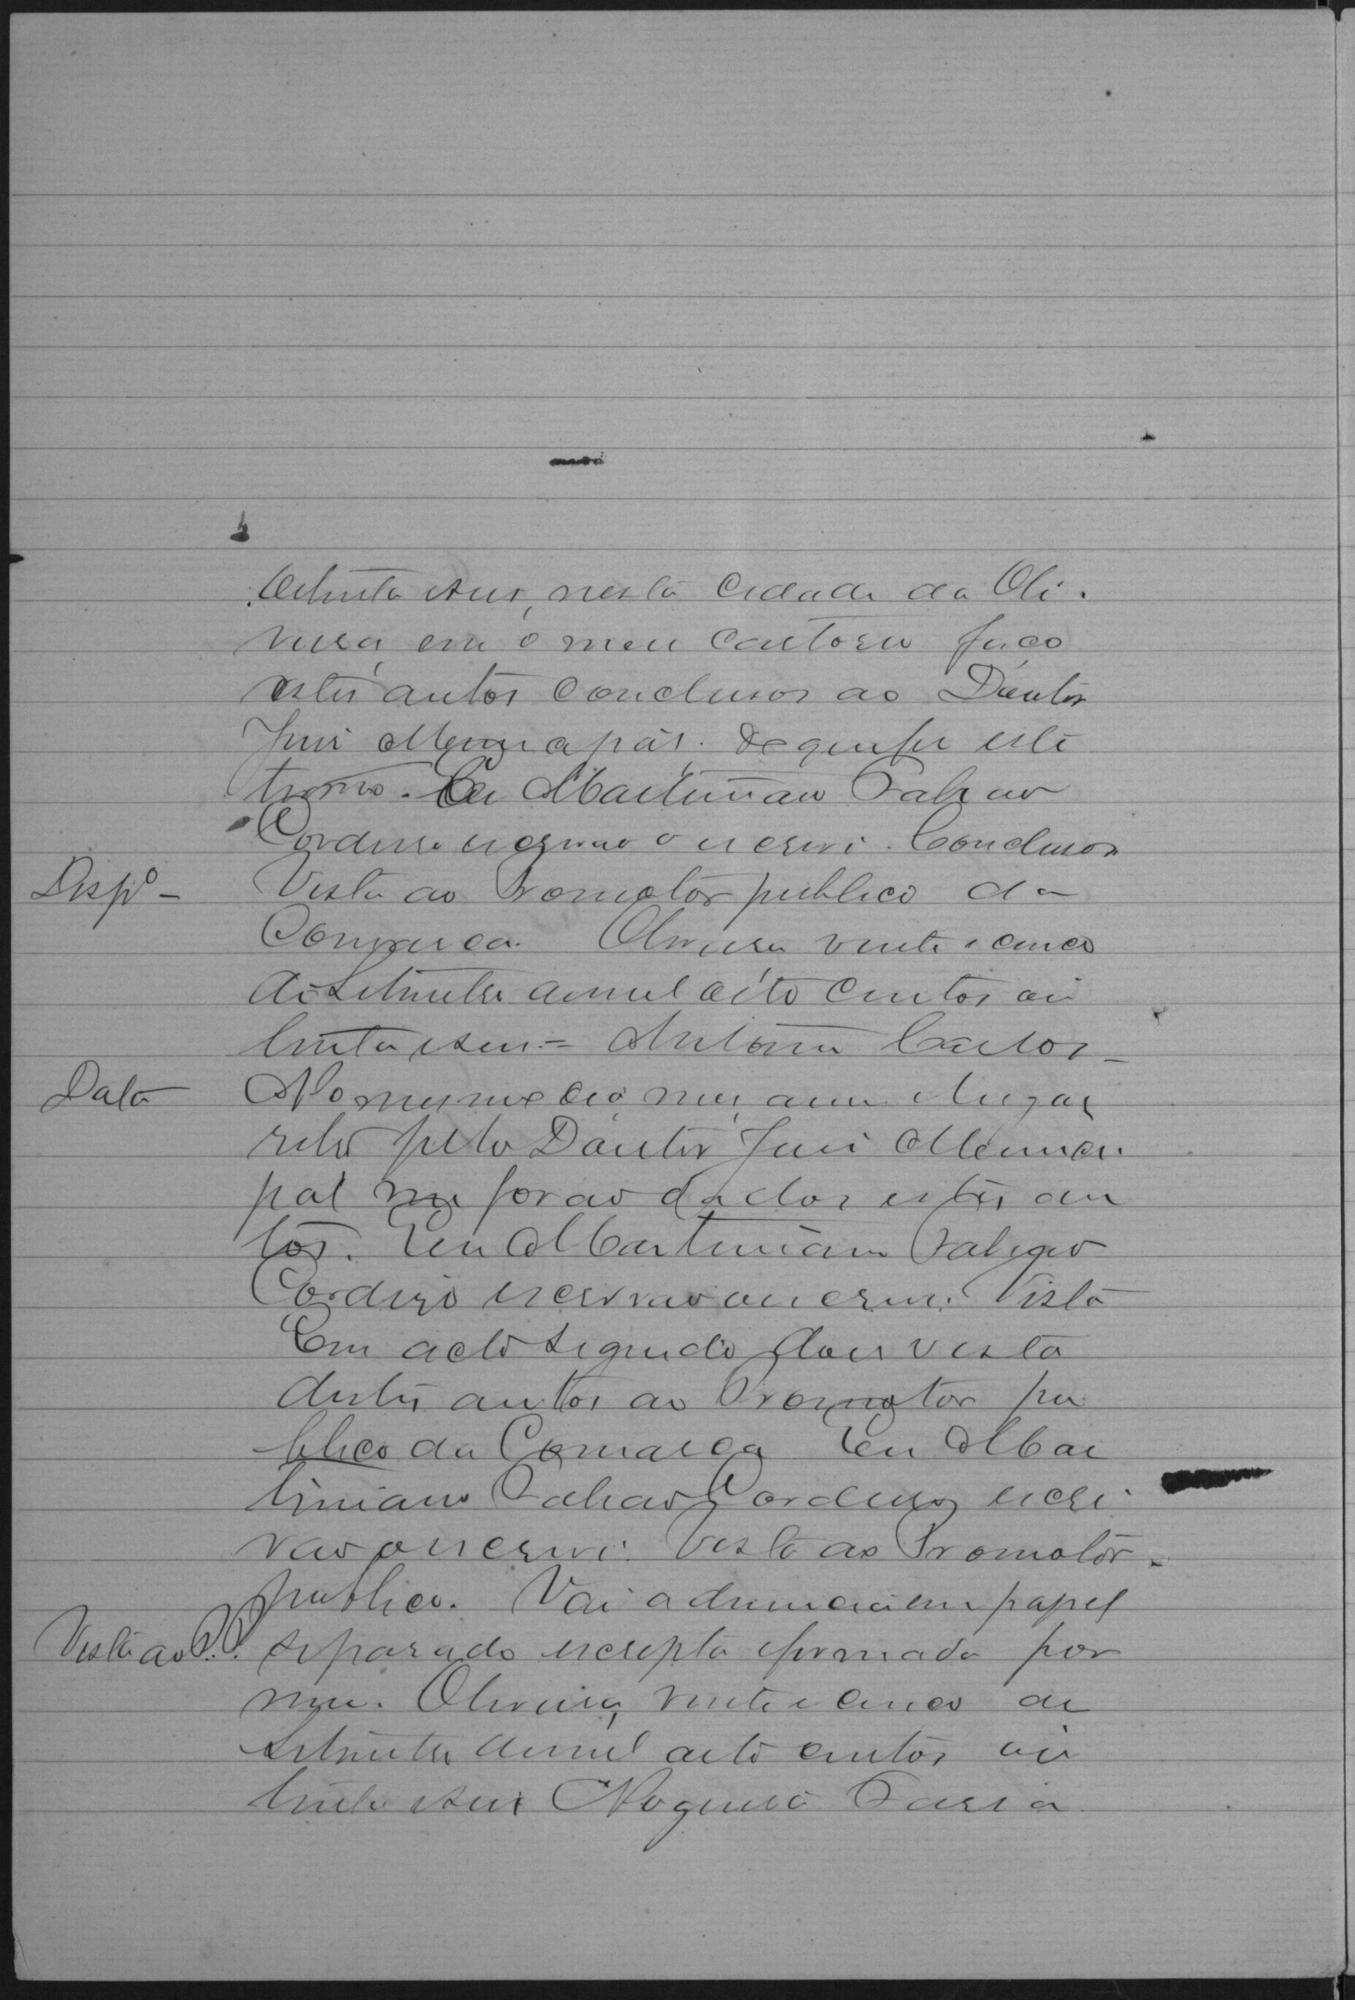 oitenta e seis, nesta cidade da Oli-
veira, em o meu cartorio faço
estes autos conclusos ao Doutor
Juiz Municipal. De que fiz este
termo. Eu Martiniano
Cordeiro escrivão o escrevi. Conclusos
Desp.º - Vista ao Promotor publico da
Comarca. Oliveira vinte e cinco
de Setembro de mil oito centos oi
tenta e seis = Antonio Carlos -
Data No mesmo dia, mez, anno e lugar
pelo Doutor Juiz Munici-
pal me forão dados estes au
tos. Eu Martiniano
Cordeiro escrivão o escrevi. Vista
Em acto seguido dou vista
destes autos ao Promotor pu
blico da Comarca Eu Mar
tiniano Cordeiro escri-
vão o escrevi. Vista ao Promotor
publico. Vai a denuncia em papel
Vista ao P.P. separado escripta e firmada por
mim. Oliveira, vinte e cinco de
Setembro de mil oito centos oi
tenta e seis Nogueira Faria